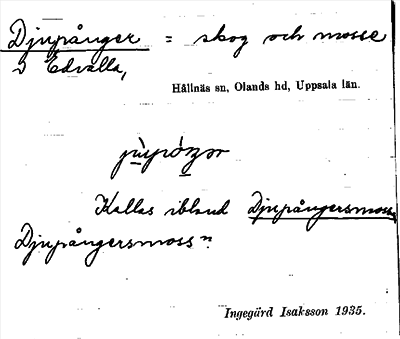 Djupånger = skog och mosse
i Edvalla,
Hållnäs sn, Olands hd, Uppsala län.
Kallas ibland Djupångersmoss
Djupångersmossⁿ
Ingegärd Isaksson 1935.